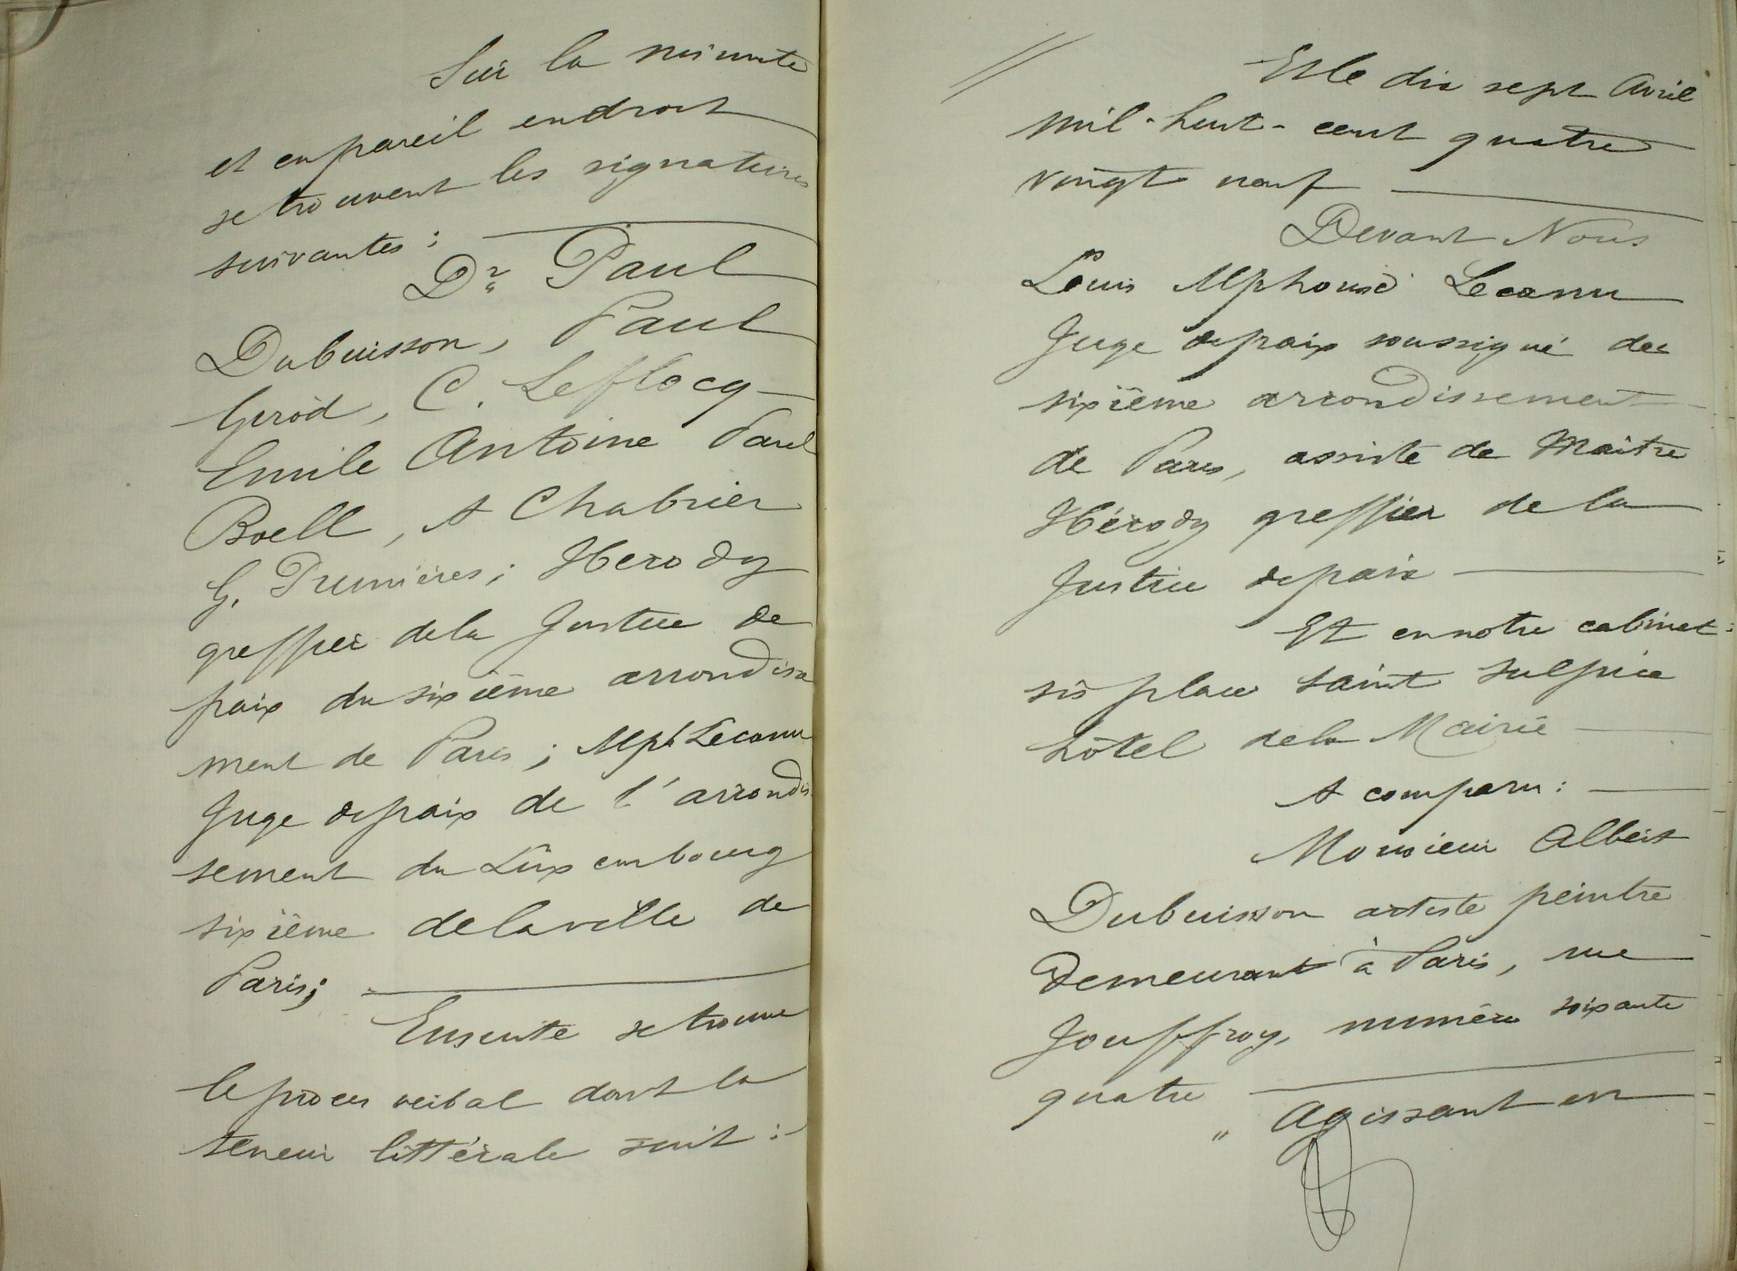 Sur la minute
et en pareil endroit
se trouvent les signatures
suivantes :
Dr Paul
Dubuisson, Paul
Gerod, C. Leflocq
Emile Antoine Paul
Boell, A Chabrier
G. Prunières; Herody
greffier de la Justice de
paix du sixième arrondisse
ment de Paris; Alph Lecanu
Juge de paix de l'arrondis
sement du Luxembourg
sixième de la ville de
Paris;
Ensuite se trouve
le procès verbal dont la
teneur littérale suit :
Et le dix sept Avril
mil-huit-cent quatre
vingt neuf
Devant Nous
Louis Alphonse Lecanu
Juge de paix soussigné du
sixième arrondissement
de Paris, assisté de Maître
Hérody greffier de la
Justice de paix
Et en notre cabinet
sis place Saint Sulpice
hôtel de la Mairie
A comparu :
Monsieur Albert
Dubuisson artiste peintre
Demeurant à Paris, rue
Jouffroy, numéro soixante
quatre
„ Agissant en